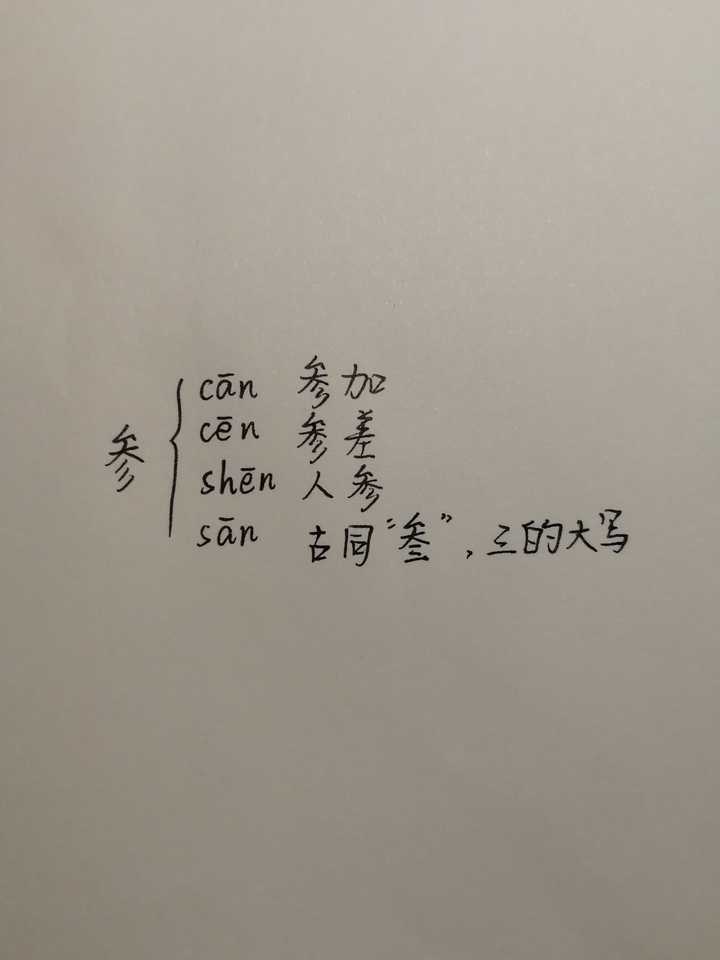 参
cān 参加
cēn 参差
shēn 人参
sān 古同“叁”，三的大写